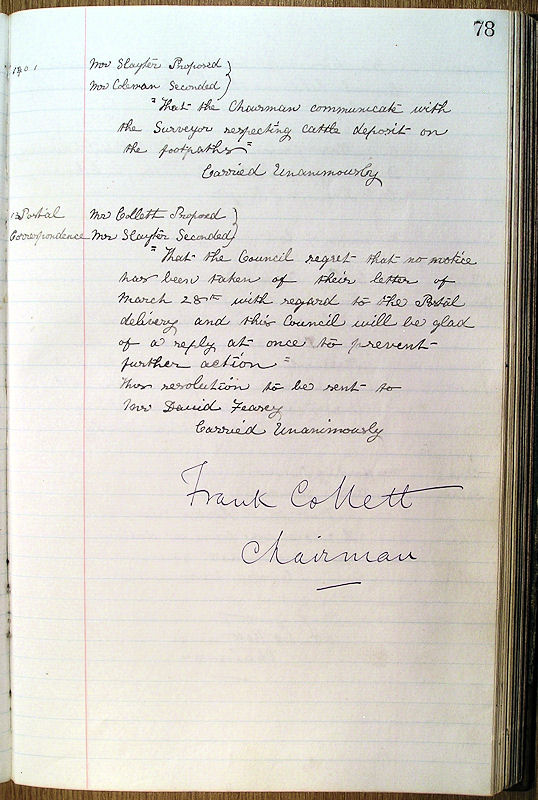 78
1901
Mr Slayter Proposed }
Mr Coleman Seconded }
"That the Chairman communicate with
the Surveyor respecting cattle deposit on
the footpaths"
Carried Unanimously
Postal Mr Collett Proposed }
Correspondence Mr Slayter Seconded }
"That the Council regret that no notice
has been taken of their letter of
March 28th with regard to the Postal
delivery and this Council will be glad
of a reply at once to prevent
further action"
This resolution to be sent to
Mr David Fearey
Carried Unanimously
Frank Collett
Chairman